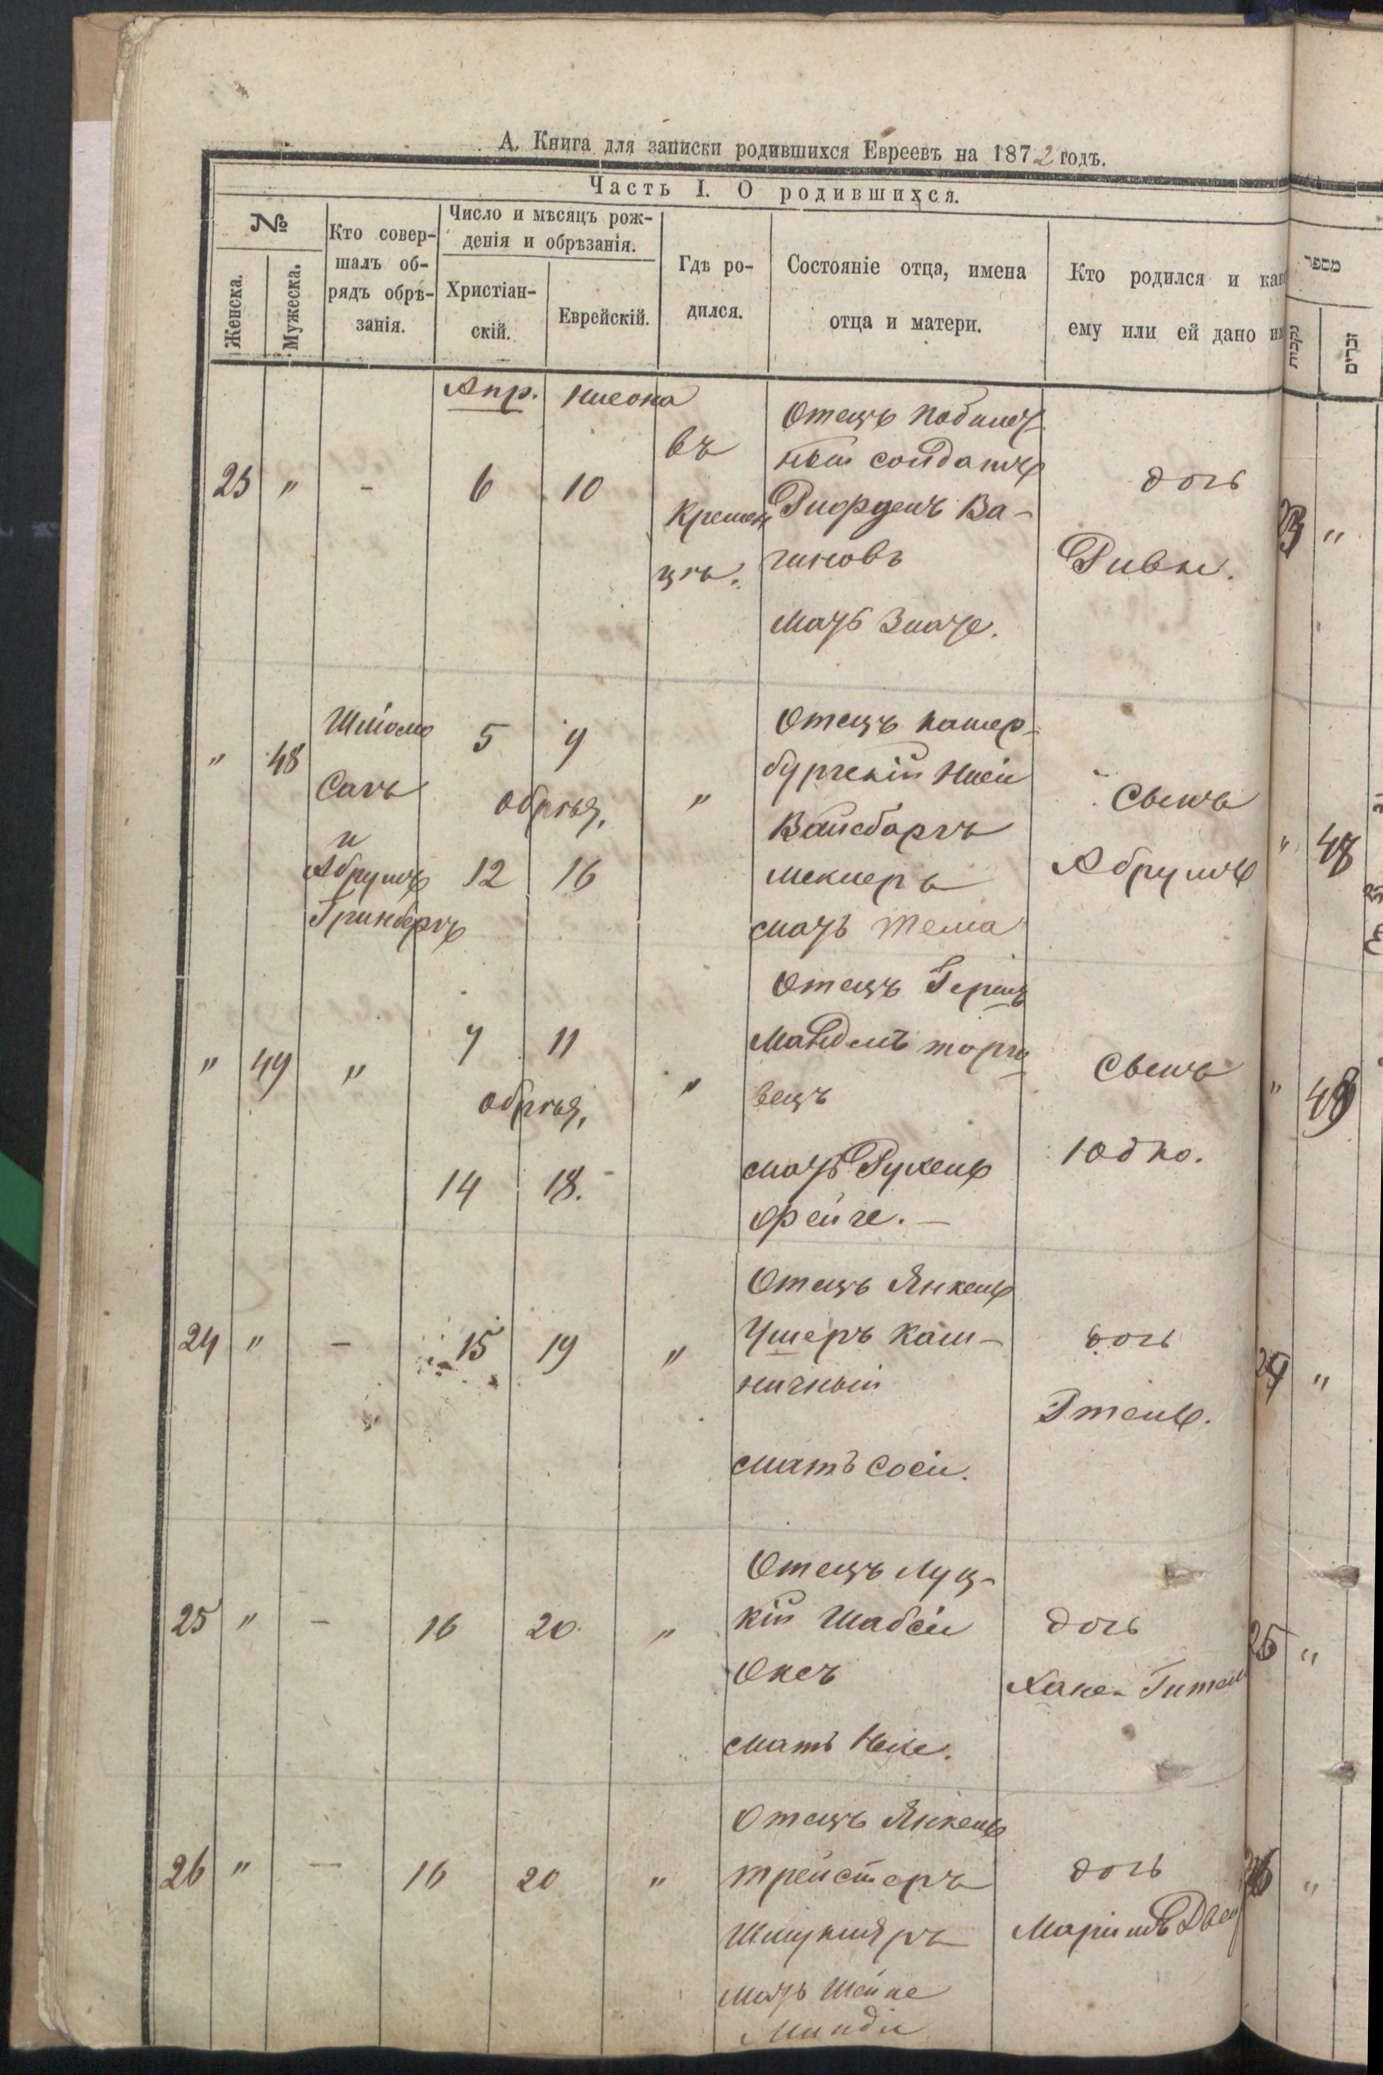 А. Книга для записки родившихся Евреевъ на 1872 годъ.
Часть I. О родившихся.
№
Женска.
Мужеска.
Кто совер-
шалъ об-
рядъ обрѣ-
занія.
Число и мѣсяцъ рож-
денія и обрѣзанія.
Христіан-
скій.
Еврейскій.
Гдѣ ро-
дился.
Состояніе отца, имена
отца и матери.
Кто родился и как
ему или ей дано им
מספר
נקבות
זכרים
Апр. Нисона
23 " - 6 10
въ
Кремен
цѣ.
Отецъ
солдатъ
Ва-
гиновъ
мать Злате.
дочь
Ривке.
" 48
Шліомо
Сакъ
и
Абрумъ
Гринбергъ
5 9
обрѣз,
12 16
"
Отецъ
бургскій
Вайсбаргъ
меклеръ
мать Тема
Сынъ
Абрумъ
" 49 " 7 11
обрѣз,
14 18.
"
Отецъ Гершъ
Мандель торго
вецъ
мать Рухель
Фейге. —
Сынъ
Юдко.
24 " - 15 19 "
Отецъ Янкель
Ушеръ Каш-
ничный
мать Соси.
дочь
Этель.
25 " - 16 20 "
Отецъ Луц-
кій Шабси
Оксъ
мать Нехе.
дочь
Хане-Гитель
26 " - 16 20 "
Отецъ Янкель
Трейстеръ
Шмуклѣръ
мать Шейне
Минди
дочь
Маріимъ
23 "
" 48
" 49
24 "
25 "
26 "